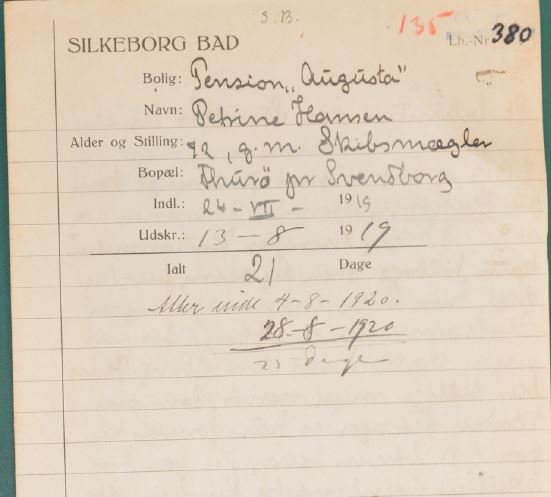 S.B.
135
SILKEBORG BAD Lb.-Nr. 380
Bolig: Pension „Augusta"
Navn: Petrine Hansen
Alder og Stilling: 42, g. m. Skibsmægler
Bopæl: Thurø pr Svendborg
Indl.: 24 - VII - 1919
Udskr.: 13 - 8 1919
Ialt 21 Dage
Atter inde 4-8-1920.
28-8-1920
25 dage